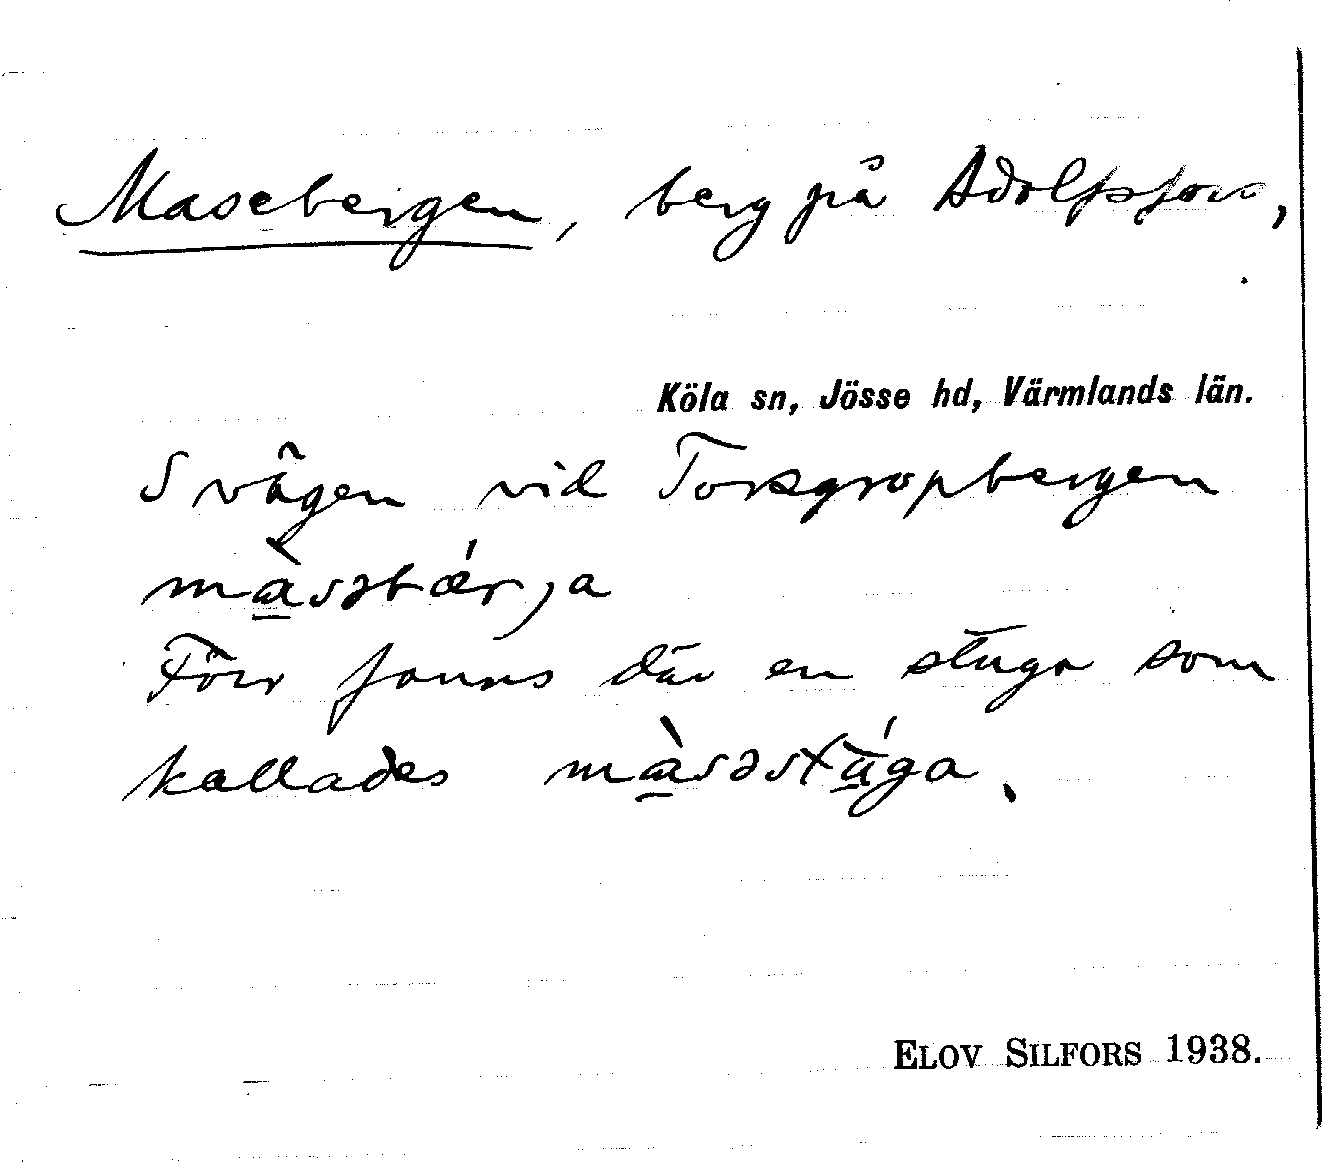 Masebergen, berg på Adolfsfors,
Köla sn, Jösse hd, Värmlands län.
S vägen vid Torsgropbergen
màsəbǽrja
Förr fanns där en stuga som
kallades màsəstúga.
ELOV SILFORS 1938.